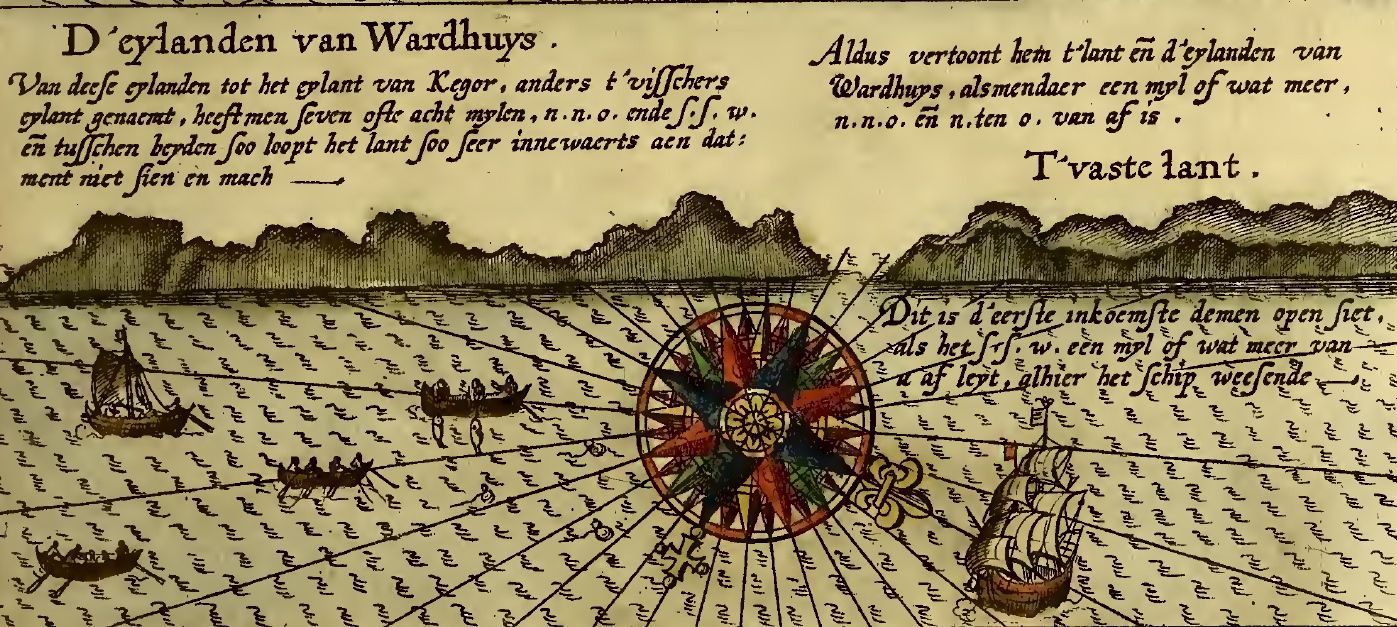 D'eylanden van Wardhuys.
Van deese eylanden tot het eylant van Kegor, anders t'visschers
eylant genaemt, heeftmen seven ofte acht mylen, n.n.o. ende s.s.w.
en̄ tusschen beyden soo loopt het lant soo seer innewaerts aen dat:
ment niet sien en mach
Aldus vertoont hem t'lant en̄ d'eylanden van
Wardhuys, alsmendaer een myl of wat meer,
n.n.o. en̄ n.ten o. van af is.
T'vaste lant.
Dit is d'eerste inkoemste demen open siet,
als het s.s.w. een myl of wat meer van
u af leyt, alhier het schip weesende